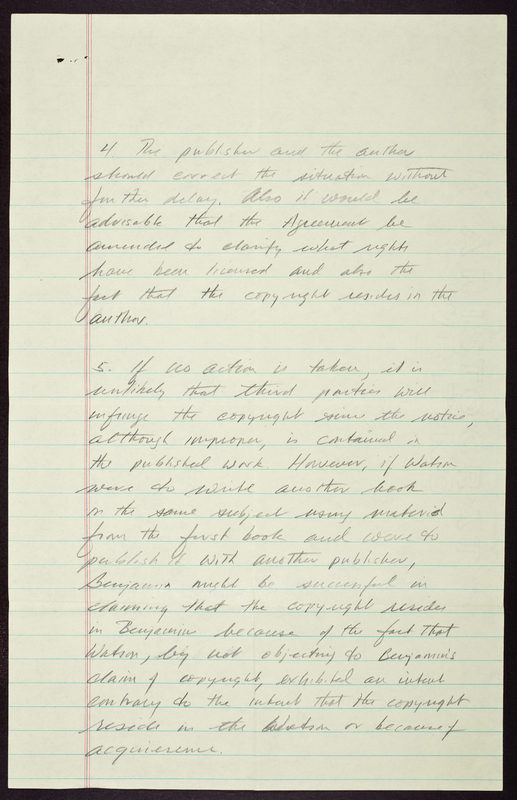 4 The publisher and the author
should correct the situation without
further delay. Also it would be
advisable that the Agreement be
amended to clarify what rights
have been licensed and also the
fact that the copyright resides in the
author.
5. If no action is taken, it is
unlikely that third parties will
infringe the copyright since the notice,
although improper, is contained in
the published work. However, if Watson
were to write another book
on the same subject using material
from the first book and were to
publish it with another publisher,
Benjamin might be successful in
claiming that the copyright resides
in Benjamin because of the fact that
Watson, by not objecting to Benjamin's
claim of copyright, exhibited an intent
contrary to the intent that the copyright
reside in the Watson or because of
acquiescence.